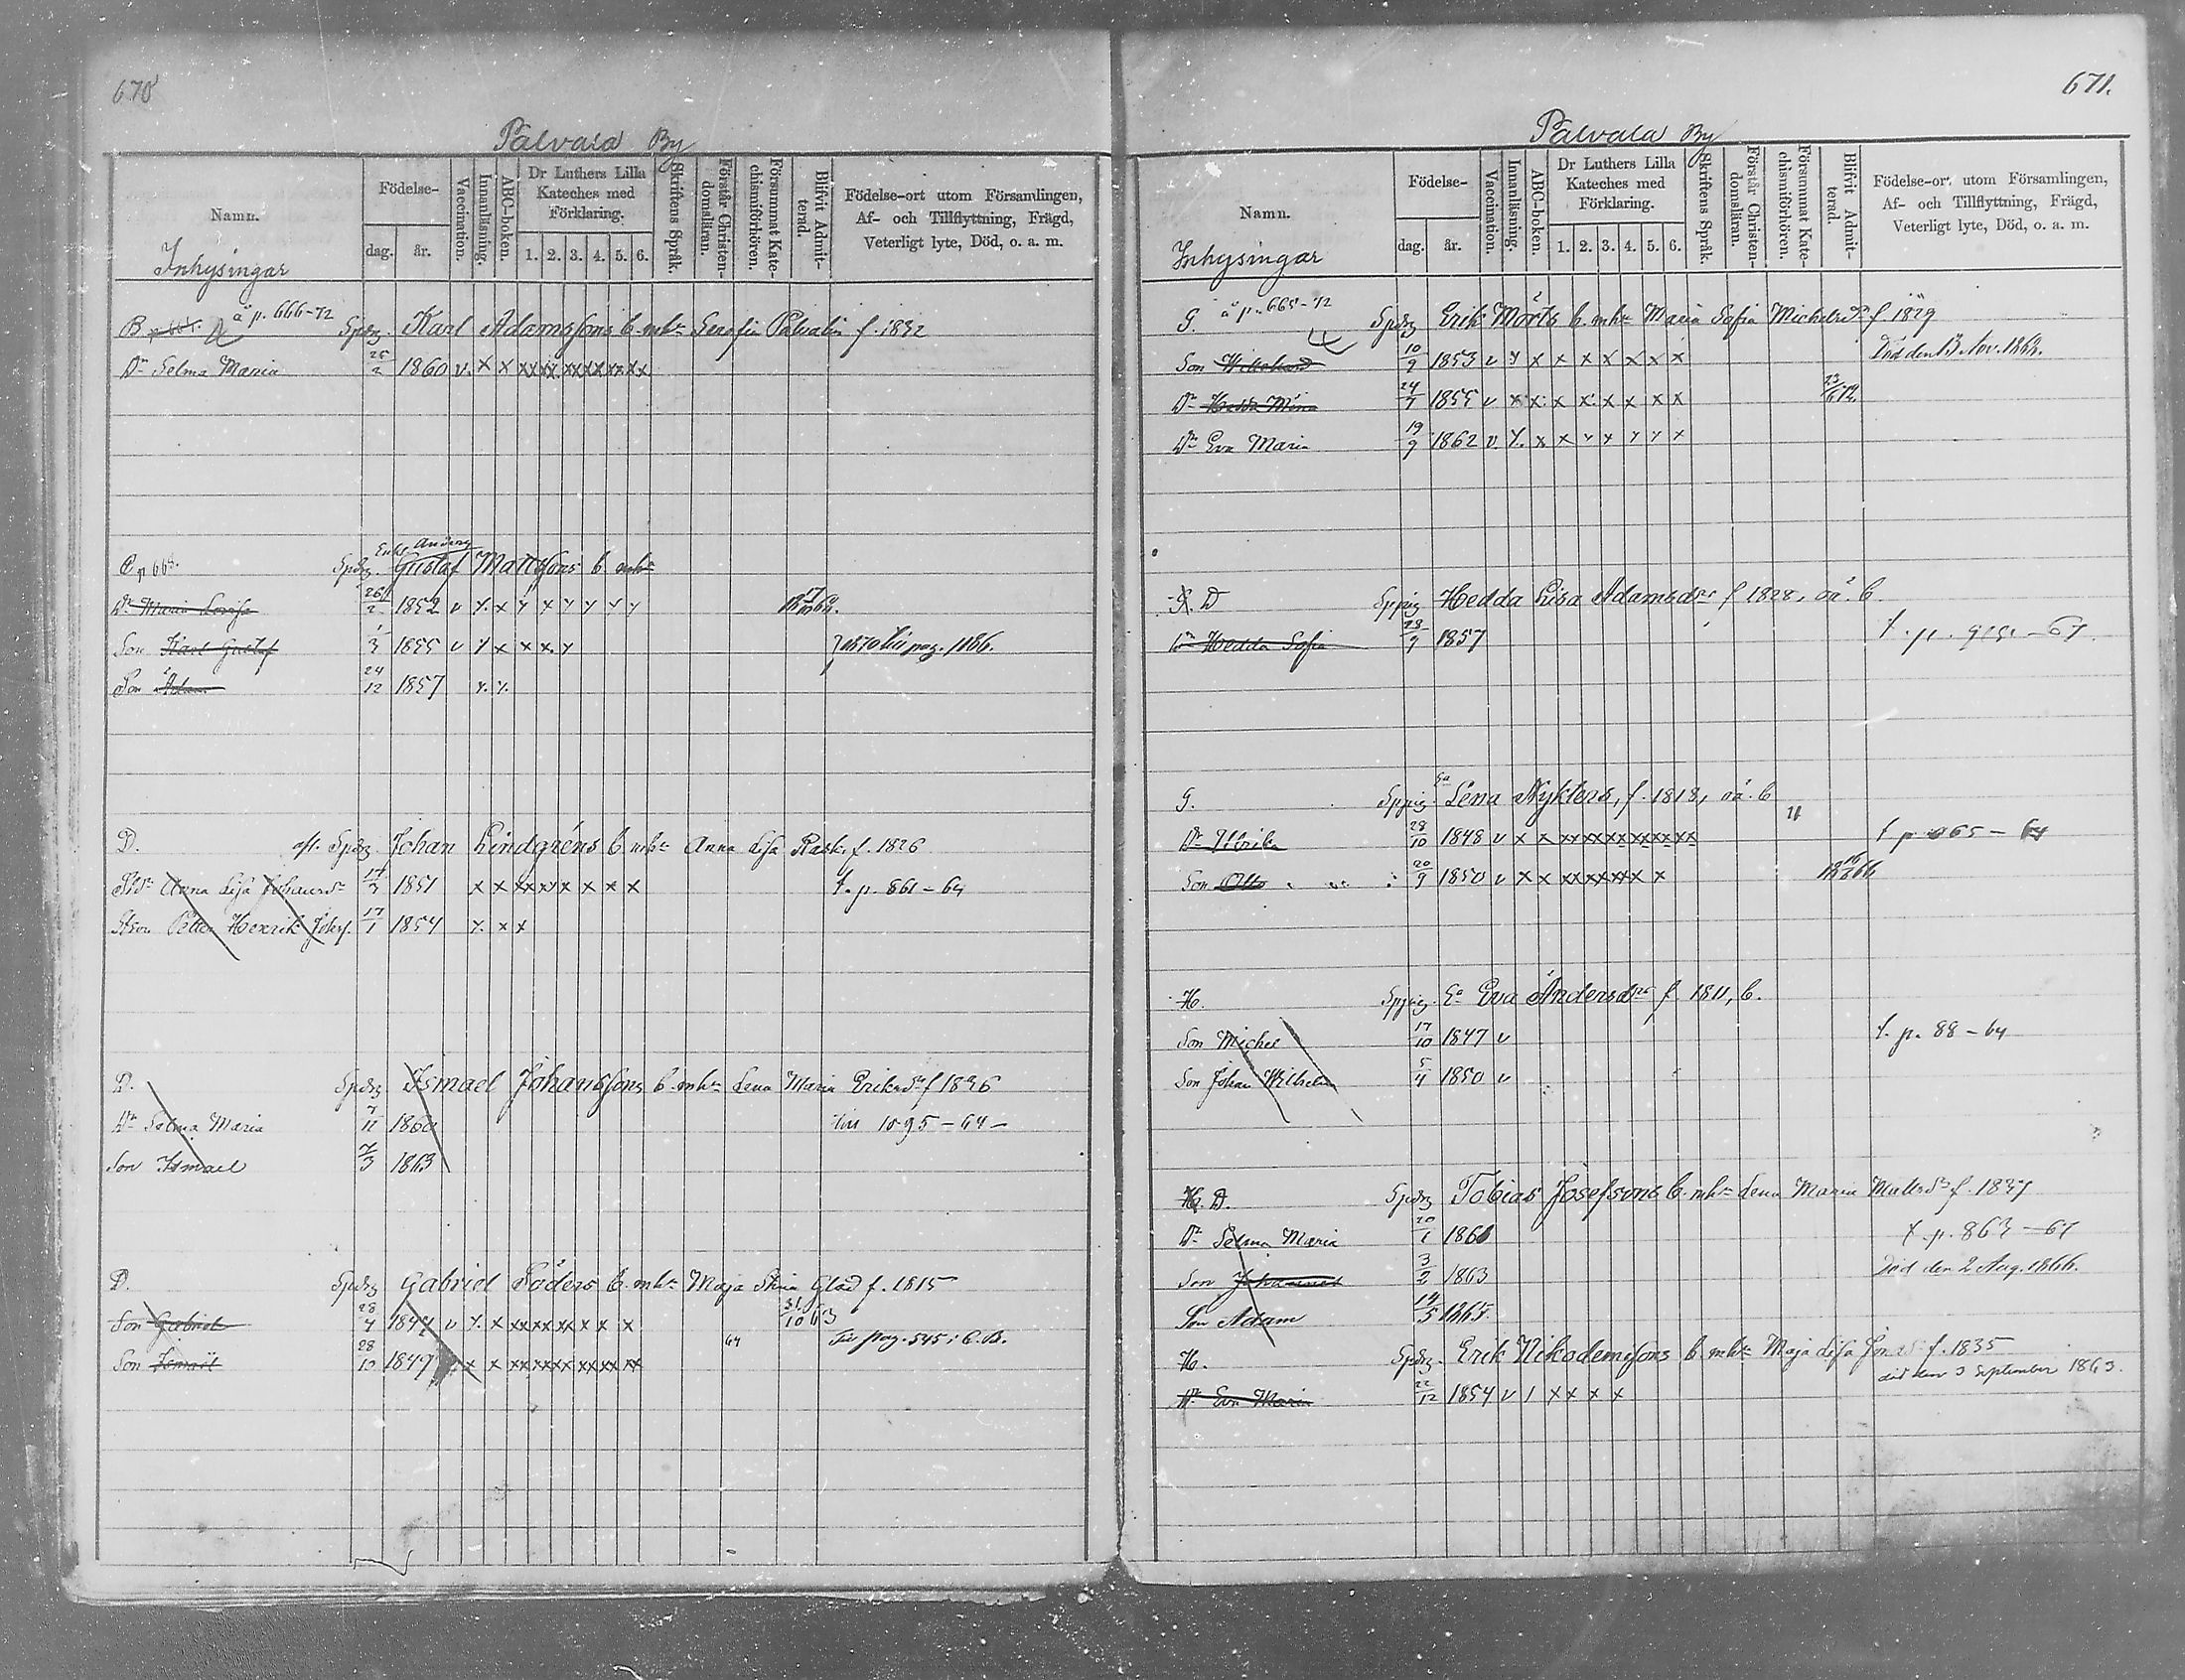 670
Palvala By
Namn.
Födelse-
dag. år.
Vaccination.
Innanläsning.
ABC-boken.
Dr Luthers Lilla Kateches med Förklaring.
1. 2. 3. 4. 5. 6.
Skriftens Språk.
Förstår Christen-domsläran.
Försummat Kate-chismiförhören.
Blifvit Admit-terad.
Födelse-ort utom Församlingen,
Af- och Tillflyttning, Frägd,
Veterligt lyte, Död, o. a. m.
Inhysingar
B å p. 666-72 Spdrg Karl Adamssons b. mhr Serafia Palvalin f. 1832
Dr Selma Maria 25/2 1860 v. x x xx xx xx xx xx xx
Enkl. Anders
C p 668. Spdrg. Gustaf Mattssons b. mhr
Dr Maria Lovisa 26/2 1852 v x x x x x x x x
Son Karl Gustaf 1/3 1855 v x x x x x } 1870 till pag. 1186.
Son Adam 24/12 1857 x. x.
D. afl. Spdrg. Johan Lindgréns b mhr Anna Lisa Rask. f. 1826
Anna Lisa Johansdr 17/3 1851 x x xx xx x x x x t. p. 861-64
Petter Henrik 17/1 1854 x. x x
D. Spdrg Ismael Johanssons b. mhr Lena Maria Eriksdr f 1836
Dr Selma Maria 7/11 1860 till 1095-64-
Son Ismael 7/3 1863
D. Spdrg Gabriel Söders b. mhr Maja Stina Glad f. 1815
Son Gabriel 28/4 1844 v x. x xx xx xx x x x 31/10 63
Son Ismaël 28/10 1847 x x xx xx xx xx xx xx 64 Till pag. 545 i C.B.
671.
Palvala By
Namn.
Födelse-
dag. år.
Vaccination.
Innanläsning.
ABC-boken.
Dr Luthers Lilla Kateches med Förklaring.
1. 2. 3. 4. 5. 6.
Skriftens Språk.
Förstår Christen-domsläran.
Försummat Kate-chismiförhören.
Blifvit Admit-terad.
Födelse-ort utom Församlingen,
Af- och Tillflyttning, Frägd,
Veterligt lyte, Död, o. a. m.
Inhysingar
G. å p. 665-72 Spdrg Erik Mörts b. mhr Maria Sofia Michelsdr f 1829
Son 10/9 1853 v x x x x x x x x Död den 13 Nov. 1868.
Dr Hedda Mina 24/7 1855 v x x x x x x x x 23/6 72.
Dr Eva Maria 19/9 1862 v. x. x x x x x x x
D Sppig Hedda Lisa Adamsdr f 1828, oä. b
Dr Hedda Sofia 28/9 1857 t. p. -67.
G. Sppig Ea Lena Nykters, f. 1818, oä. b
Dr Ulrika 28/10 1848 v x x xx xx xx xx xx xx t p 865-64
Son Otto 20/9 1850 v x x xx xx xx x x
H. Sppig. Ea Eva Andersdr f 1811, b.
Son Michel 17/10 1847 v t. p. 88-64
Son Johan Wilhelm 5/4 1850 v
H. D. Spdrg Tobias Josefsons b. mhr Lena Maria Mattsdr f. 1837
Dr Selma Maria 20/1 1860 t. p. 863-67
Son Johannes 3/2 1863 Död den 2 Aug. 1866.
Son Adam 14/5 1865.
H. Spdrg. Erik Nikodemssons b. mhr Maja Lisa f. 1835
Dr Eva Maria 22/12 1854 v 1 x x x x död den 3 September 1863.